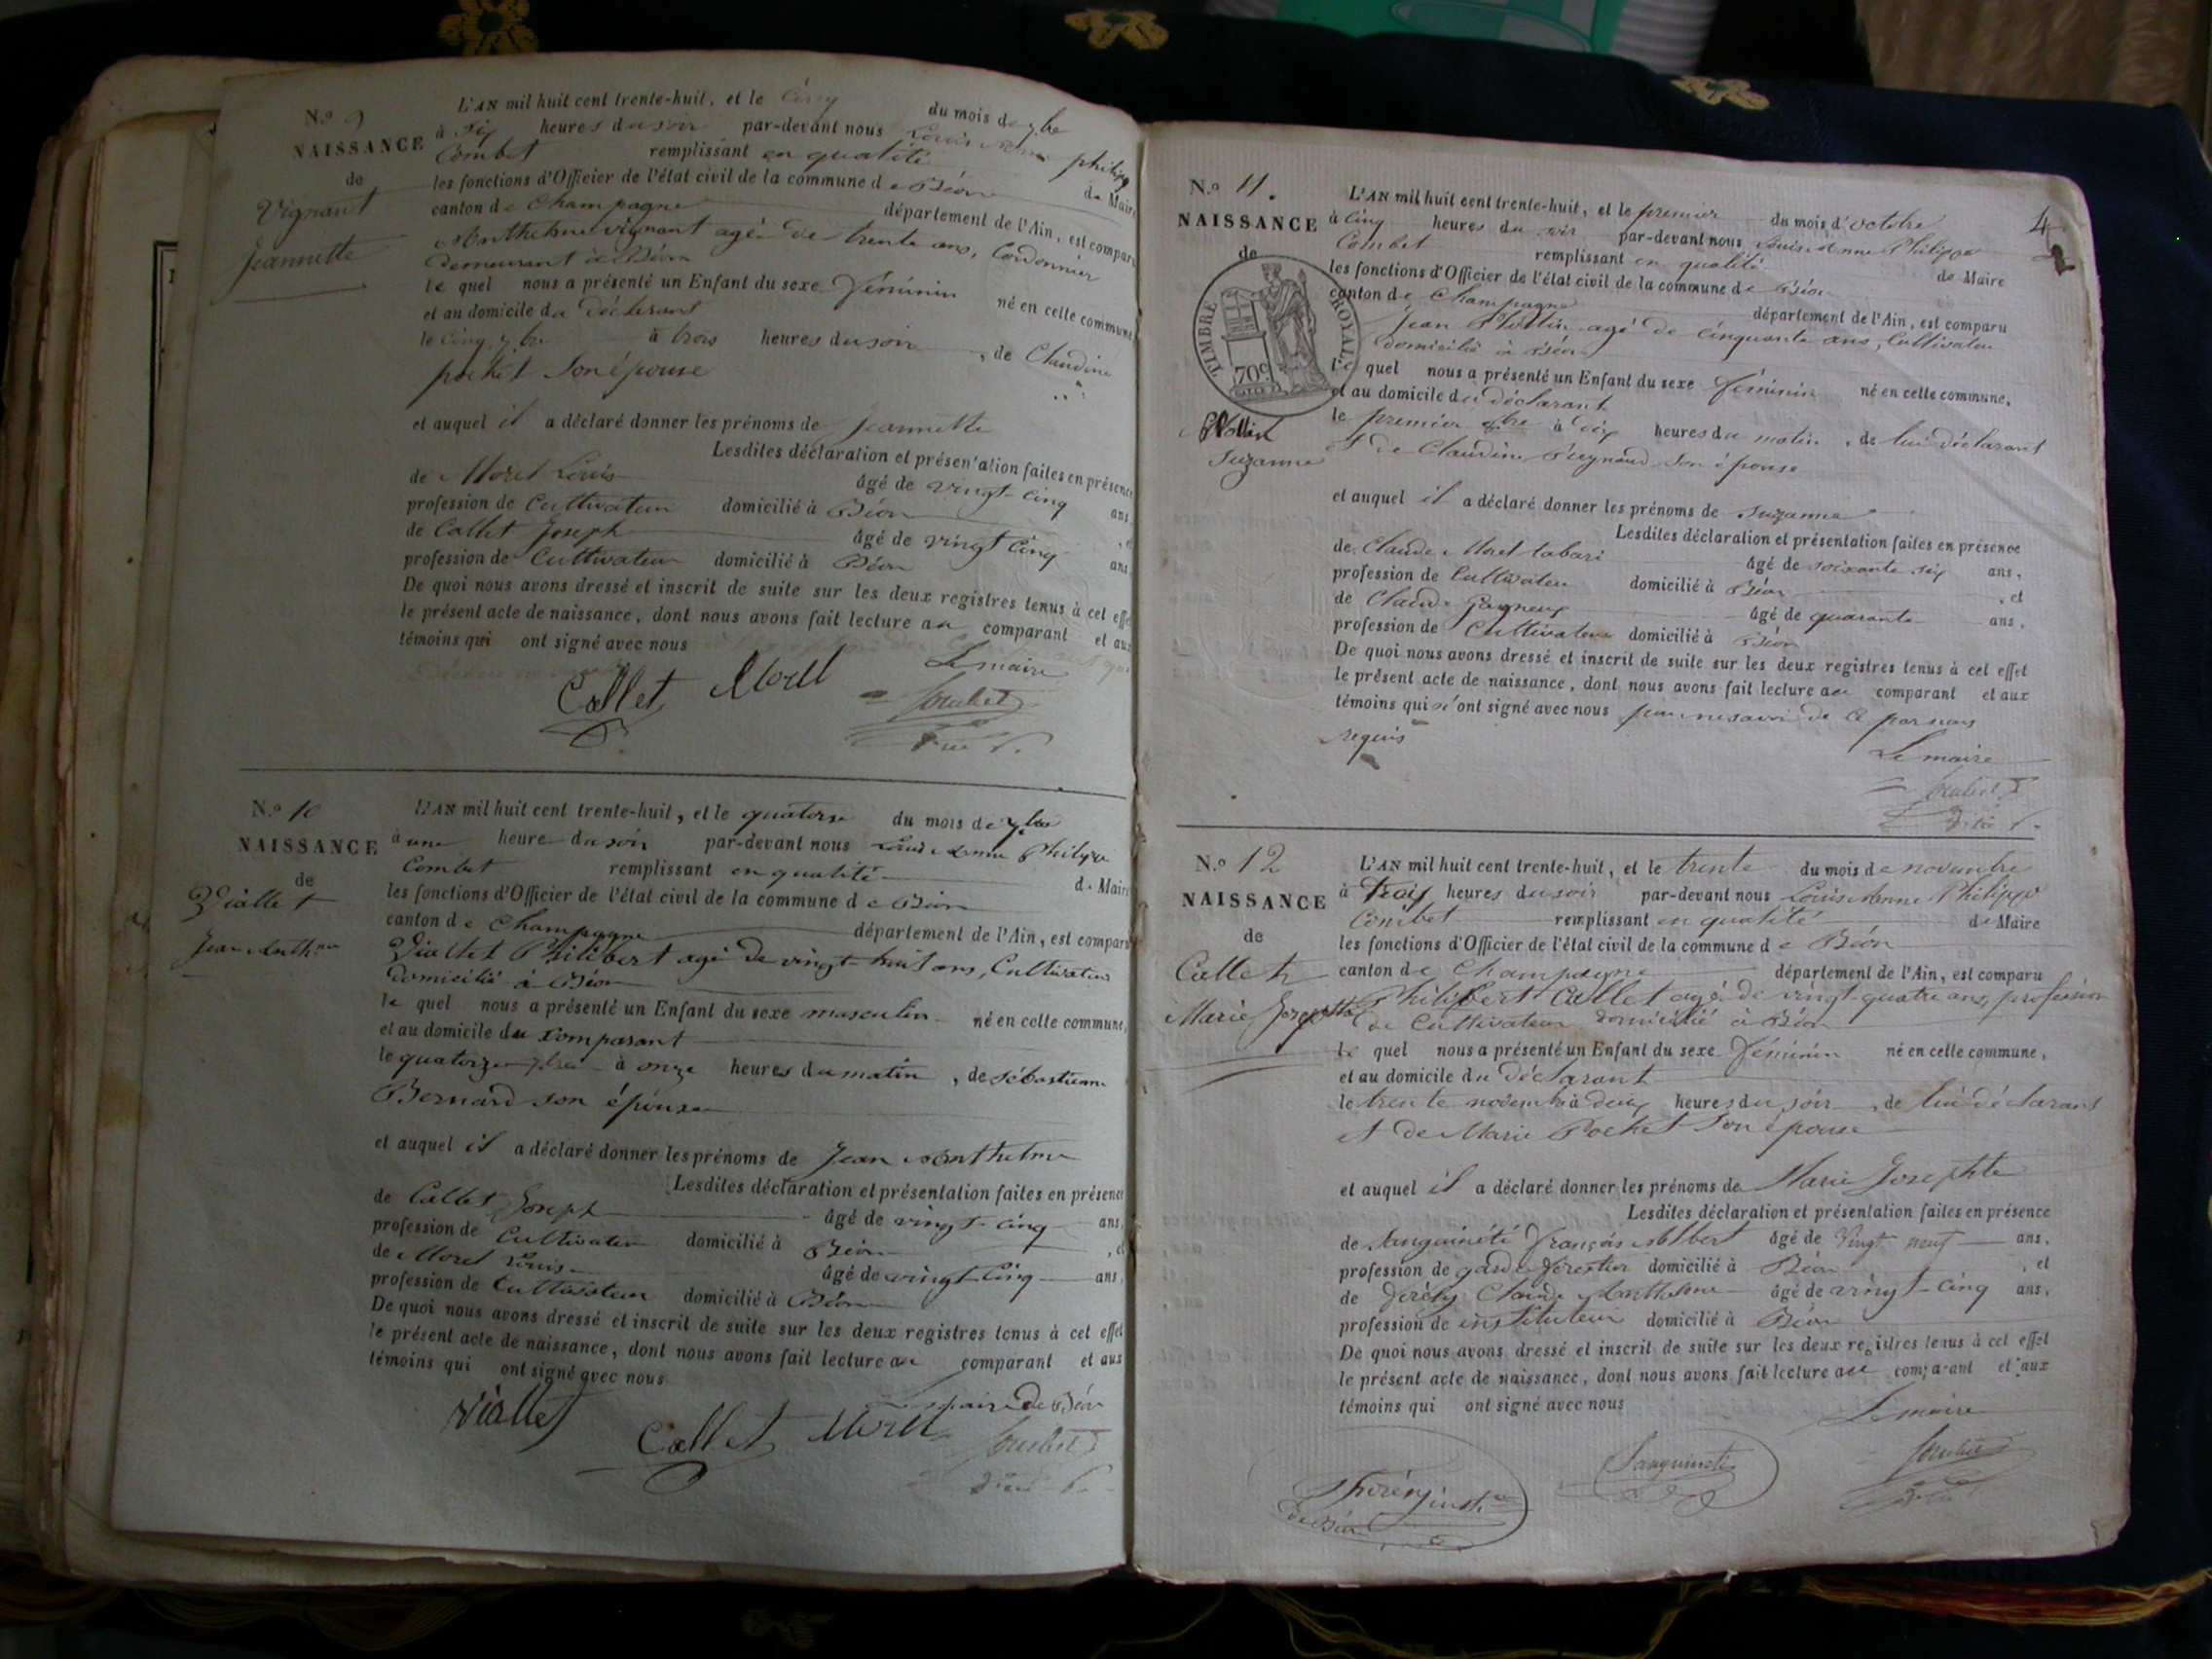 N.o 9
NAISSANCE
de
Vignant
Jeannette
L'AN mil huit cent trente-huit, et le cinq du mois de 7bre
à six heures du soir par-devant nous Louis Anne Philippe
Combet remplissant en qualité de Maire
les fonctions d'Officier de l'état civil de la commune de Béon
canton de Champagne département de l'Ain, est comparu
Anthelme Vignant agé de trente ans, Cordonnier
demeurant à Béon
le quel nous a présenté un Enfant du sexe féminin né en celle commune
et au domicile du déclarant
le cinq 7bre à trois heures du soir, de Claudine
pochet son épouse
et auquel il a déclaré donner les prénoms de Jeannette
Lesdites déclaration et présentation faites en présence
de Morel Louis âgé de vingt-cinq ans
profession de Cultivateur domicilié à Béon
de Callet Joseph âgé de vingt cinq ans
profession de Cultivateur domicilié à Béon
De quoi nous avons dressé et inscrit de suite sur les deux registres tenus à cet effet
le présent acte de naissance, dont nous avons fait lecture au comparant et aux
témoins qui ont signé avec nous
Callet Morel Le maire
Combet
N.o 10
NAISSANCE
de
Viallet
Jean Anth.me
L'AN mil huit cent trente-huit, et le quatorze du mois de 7bre
à une heure du soir par-devant nous Louis Anne Philippe
Combet remplissant en qualité de Maire
les fonctions d'Officier de l'état civil de la commune de Béon
canton de Champagne département de l'Ain, est comparu
Viallet Philibert agé de vingt huit ans, Cultivateur
domicilié à Béon
le quel nous a présenté un Enfant du sexe masculin né en celle commune,
et au domicile du comparant
le quatorze 7bre à onze heures du matin, de Sébastienne
Bernard son épouse
et auquel il a déclaré donner les prénoms de Jean Anthelme
Lesdites déclaration et présentation faites en présence
de Callet Joseph âgé de vingt-cinq ans,
profession de Cultivateur domicilié à Béon, et
de Morel Louis âgé de vingt-cinq ans,
profession de Cultivateur domicilié à Béon
De quoi nous avons dressé et inscrit de suite sur les deux registres tenus à cet effet
le présent acte de naissance, dont nous avons fait lecture au comparant et aux
témoins qui ont signé avec nous
Le maire de Béon
Viallet Callet Morel Combet
4
N.o 11.
NAISSANCE
de
TIMBRE ROYAL
70c
Suzanne
L'AN mil huit cent trente-huit, et le premier du mois d'octobre
à cinq heures du soir par-devant nous Louis Anne Philippe
Combet remplissant en qualité de Maire
les fonctions d'Officier de l'état civil de la commune de Béon
canton de Champagne département de l'Ain, est comparu
Jean agé de cinquante ans, Cultivateur
domicilié à Béon
le quel nous a présenté un Enfant du sexe féminin né en celle commune,
et au domicile du déclarant
le premier 8bre à dix heures du matin, de lui déclarant
et de Claudine Reynaud son épouse
et auquel il a déclaré donner les prénoms de Suzanne
Lesdites déclaration et présentation faites en présence
de Claude Morel tabari âgé de soixante six ans,
profession de Cultivateur domicilié à Béon, et
de Claude Gagneux âgé de quarante ans,
profession de Cultivateur domicilié à Béon
De quoi nous avons dressé et inscrit de suite sur les deux registres tenus à cet effet
le présent acte de naissance, dont nous avons fait lecture au comparant et aux
témoins qui n'ont signé avec nous pour ne savoir de ce par nous
requis
Le maire
Combet
N.o 12
NAISSANCE
de
Callet
Marie Josephte
L'AN mil huit cent trente-huit, et le trente du mois de novembre
à trois heures du soir par-devant nous Louis Anne Philippe
Combet remplissant en qualité de Maire
les fonctions d'Officier de l'état civil de la commune de Béon
canton de Champagne département de l'Ain, est comparu
Philibert Callet agé de vingt-quatre ans, profession
de Cultivateur domicilié à Béon
le quel nous a présenté un Enfant du sexe féminin né en celle commune,
et au domicile du déclarant
le trente novembre à deux heures du soir, de lui déclarant
et de Marie Pochet son épouse
et auquel il a déclaré donner les prénoms de Marie Josephte
Lesdites déclaration et présentation faites en présence
de Sanguinété François Albert âgé de vingt neuf ans,
profession de garde forestier domicilié à Béon, et
de Claude Anthelme âgé de vingt-cinq ans,
profession de instituteur domicilié à Béon
De quoi nous avons dressé et inscrit de suite sur les deux registres tenus à cet effet
le présent acte de naissance, dont nous avons fait lecture au comparant et aux
témoins qui ont signé avec nous
Le maire
Sanguineté Combet
de Béon